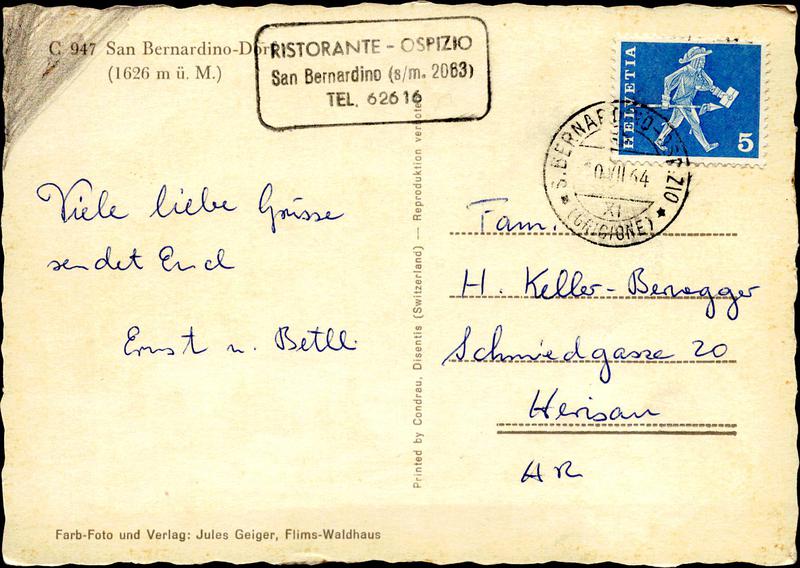 C 947 San Bernardino-Dorf
(1626 m ü. M.)
RISTORANTE - OSPIZIO
San Bernardino (s/m. 2063)
TEL. 62616
HELVETIA
5
S. BERNARDINO-OSPIZIO
XI
(GRIGIONE)
Viele liebe Grüsse
sendet Euch
Ernst u. Betli
Fam.
H. Keller-Benegger
Schmiedgasse 20
Herisau
AR
Printed by Condrau, Disentis (Switzerland) — Reproduktion verboten
Farb-Foto und Verlag: Jules Geiger, Flims-Waldhaus